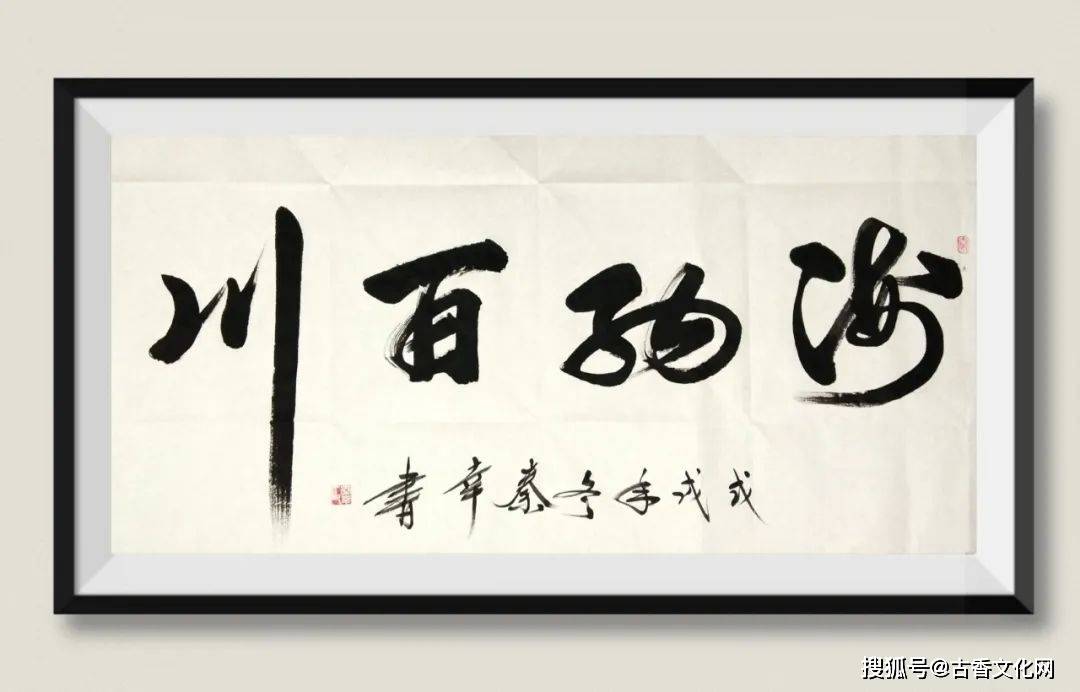 海纳百川
戊戌年冬秦幸書
搜狐号@古香文化网